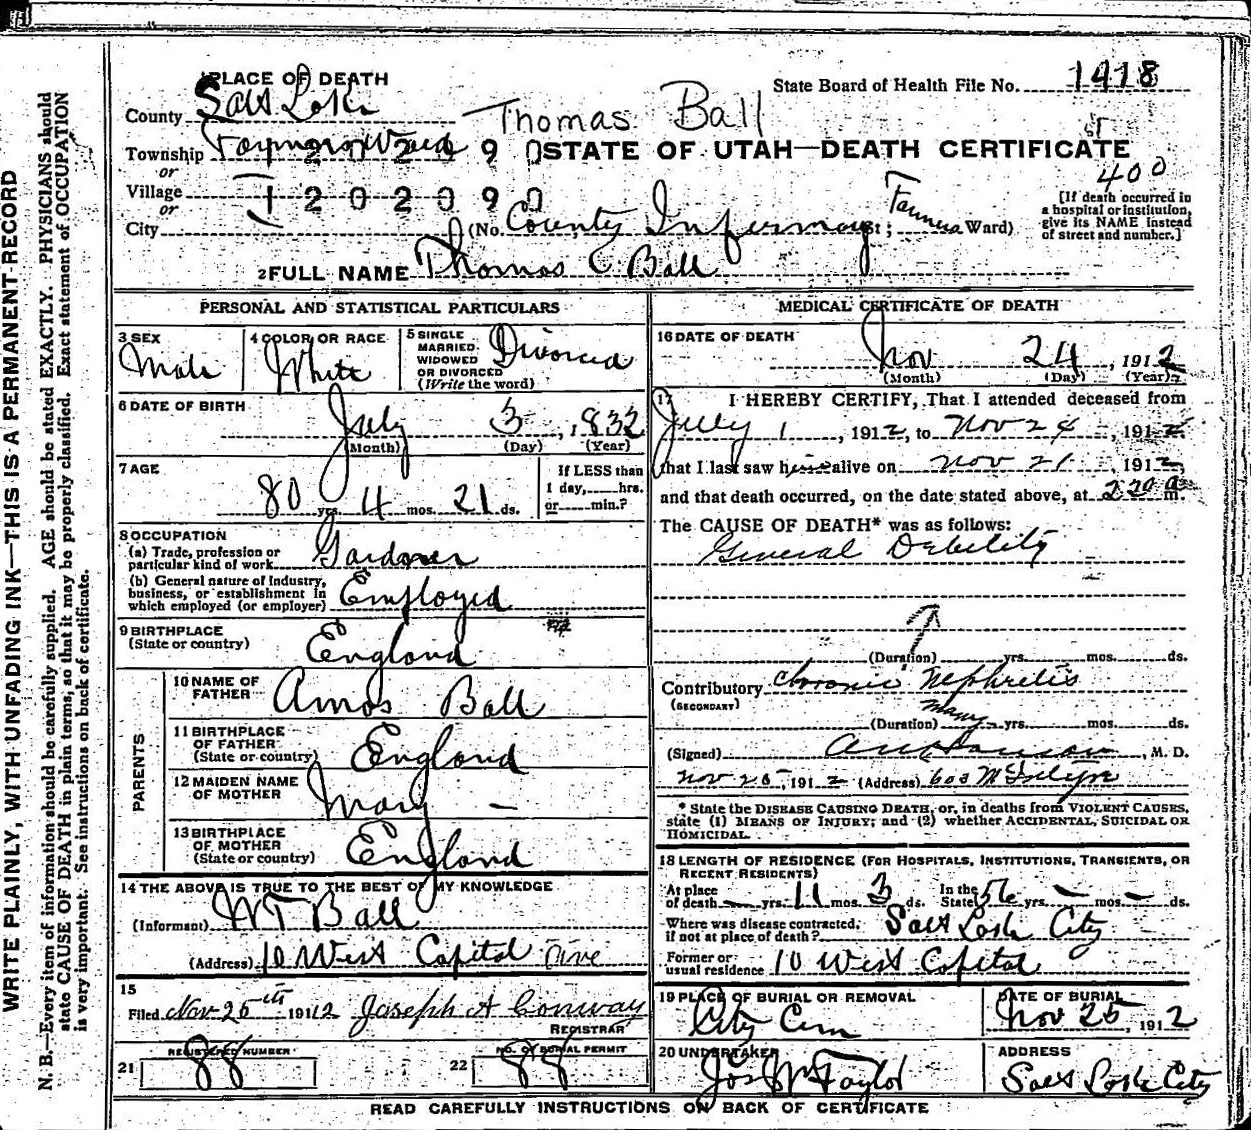 1 PLACE OF DEATH
State Board of Health File No. 1418
County Salt Lake
Thomas Ball
Township
or
STATE OF UTAH—DEATH CERTIFICATE
Village
or
1202090
400
City
(No. County Infirmary St; Farmers Ward)
[If death occurred in
a hospital or institution,
give its NAME instead
of street and number.]
2 FULL NAME Thomas C Ball
PERSONAL AND STATISTICAL PARTICULARS
3 SEX
Male
4 COLOR OR RACE
White
5 SINGLE
MARRIED
WIDOWED
OR DIVORCED
(Write the word)
Divorced
6 DATE OF BIRTH
July 3, 1832
(Month) (Day) (Year)
7 AGE
80 yrs. 4 mos. 21 ds.
If LESS than
1 day, hrs.
or min.?
8 OCCUPATION
(a) Trade, profession or
particular kind of work Gardner
(b) General nature of Industry,
business, or establishment in
which employed (or employer) Employed
9 BIRTHPLACE
(State or country) England
PARENTS
10 NAME OF
FATHER Amos Ball
11 BIRTHPLACE
OF FATHER
(State or country) England
12 MAIDEN NAME
OF MOTHER Mary —
13 BIRTHPLACE
OF MOTHER
(State or country) England
14 THE ABOVE IS TRUE TO THE BEST OF MY KNOWLEDGE
(Informant) W T Ball
(Address) 10 West Capitol Ave
15
Filed Nov 25th 1912 Joseph A Conway
REGISTRAR
21 REGISTERED NUMBER
88
22 NO. OF BURIAL PERMIT
88
MEDICAL CERTIFICATE OF DEATH
16 DATE OF DEATH
Nov 24, 1912
(Month) (Day) (Year)
17 I HEREBY CERTIFY, That I attended deceased from
July 1, 1912, to Nov 24, 1912
that I last saw him alive on Nov 21 1912,
and that death occurred, on the date stated above, at 220 a m.
The CAUSE OF DEATH* was as follows:
General Debility
(Duration) yrs. mos. ds.
Contributory Chronic Nephritis
(SECONDARY)
(Duration) many yrs. mos. ds.
(Signed) , M. D.
Nov 25, 1912 (Address) 603 McIntyre
* State the DISEASE CAUSING DEATH, or, in deaths from VIOLENT CAUSES,
state (1) MEANS OF INJURY; and (2) whether ACCIDENTAL, SUICIDAL OR
HOMICIDAL.
18 LENGTH OF RESIDENCE (FOR HOSPITALS, INSTITUTIONS, TRANSIENTS, OR
RECENT RESIDENTS)
At place
of death — yrs. 11 mos. 3 ds.
In the
State 56 yrs. — mos. — ds.
Where was disease contracted,
if not at place of death? Salt Lake City
Former or
usual residence 10 West Capitol
19 PLACE OF BURIAL OR REMOVAL
City Cem
DATE OF BURIAL
Nov 25, 1912
20 UNDERTAKER
Jos Wm Taylor
ADDRESS
Salt Lake City
READ CAREFULLY INSTRUCTIONS ON BACK OF CERTIFICATE
WRITE PLAINLY, WITH UNFADING INK—THIS IS A PERMANENT RECORD
N. B.—Every item of information should be carefully supplied. AGE should be stated EXACTLY. PHYSICIANS should
state CAUSE OF DEATH in plain terms, so that it may be properly classified. Exact statement of OCCUPATION
is very important. See instructions on back of certificate.